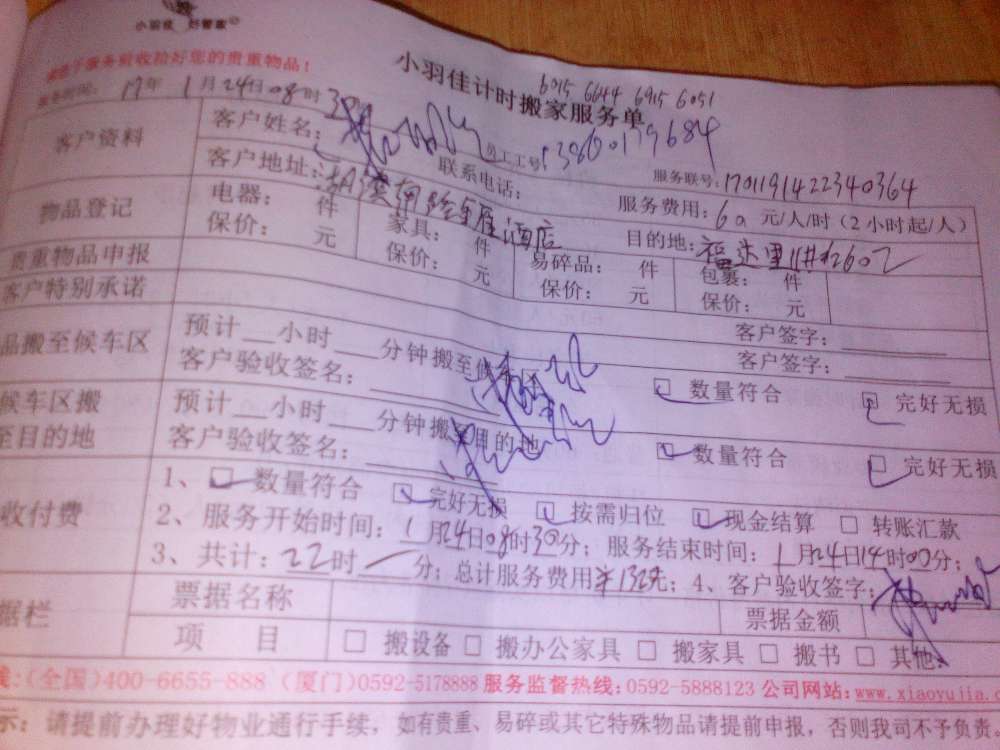 小羽佳 好管家
服务验收拾好您的贵重物品!
小羽佳计时搬家服务单
6015 6644 6915 6051
17年 1月24日08时
客户资料
客户姓名:
员工工号:
13860179684
客户地址:
酒店
联系电话:
服务联号:1701191422340364
服务费用:60 元/人/时(2小时起/人)
目的地:福达里11#2602
物品登记
电器: 件
家具: 件
易碎品: 件
包裹: 件
保价: 元
保价: 元
保价: 元
保价: 元
贵重物品申报
客户签字:
客户特别承诺
客户签字:
品搬至候车区
预计__小时__分钟搬至候车区
客户验收签名:
数量符合
完好无损
候车区搬
至目的地
预计__小时__分钟搬至目的地
客户验收签名:
数量符合
完好无损
收付费
1、数量符合 完好无损 按需归位 现金结算 转账汇款
2、服务开始时间:1月24日08时30分; 服务结束时间:1月24日14时00分;
3、共计:22时 分; 总计服务费用¥1320元; 4、客户验收签字:
据栏
票据名称
票据金额
项 目
搬设备 搬办公家具 搬家具 搬书 其他:
线:(全国)400-6655-888 (厦门)0592-5178888 服务监督热线:0592-5888123 公司网站:www.xiaoyujia.c
示:请提前办理好物业通行手续,如有贵重、易碎或其它特殊物品请提前申报,否则我司不予负责。